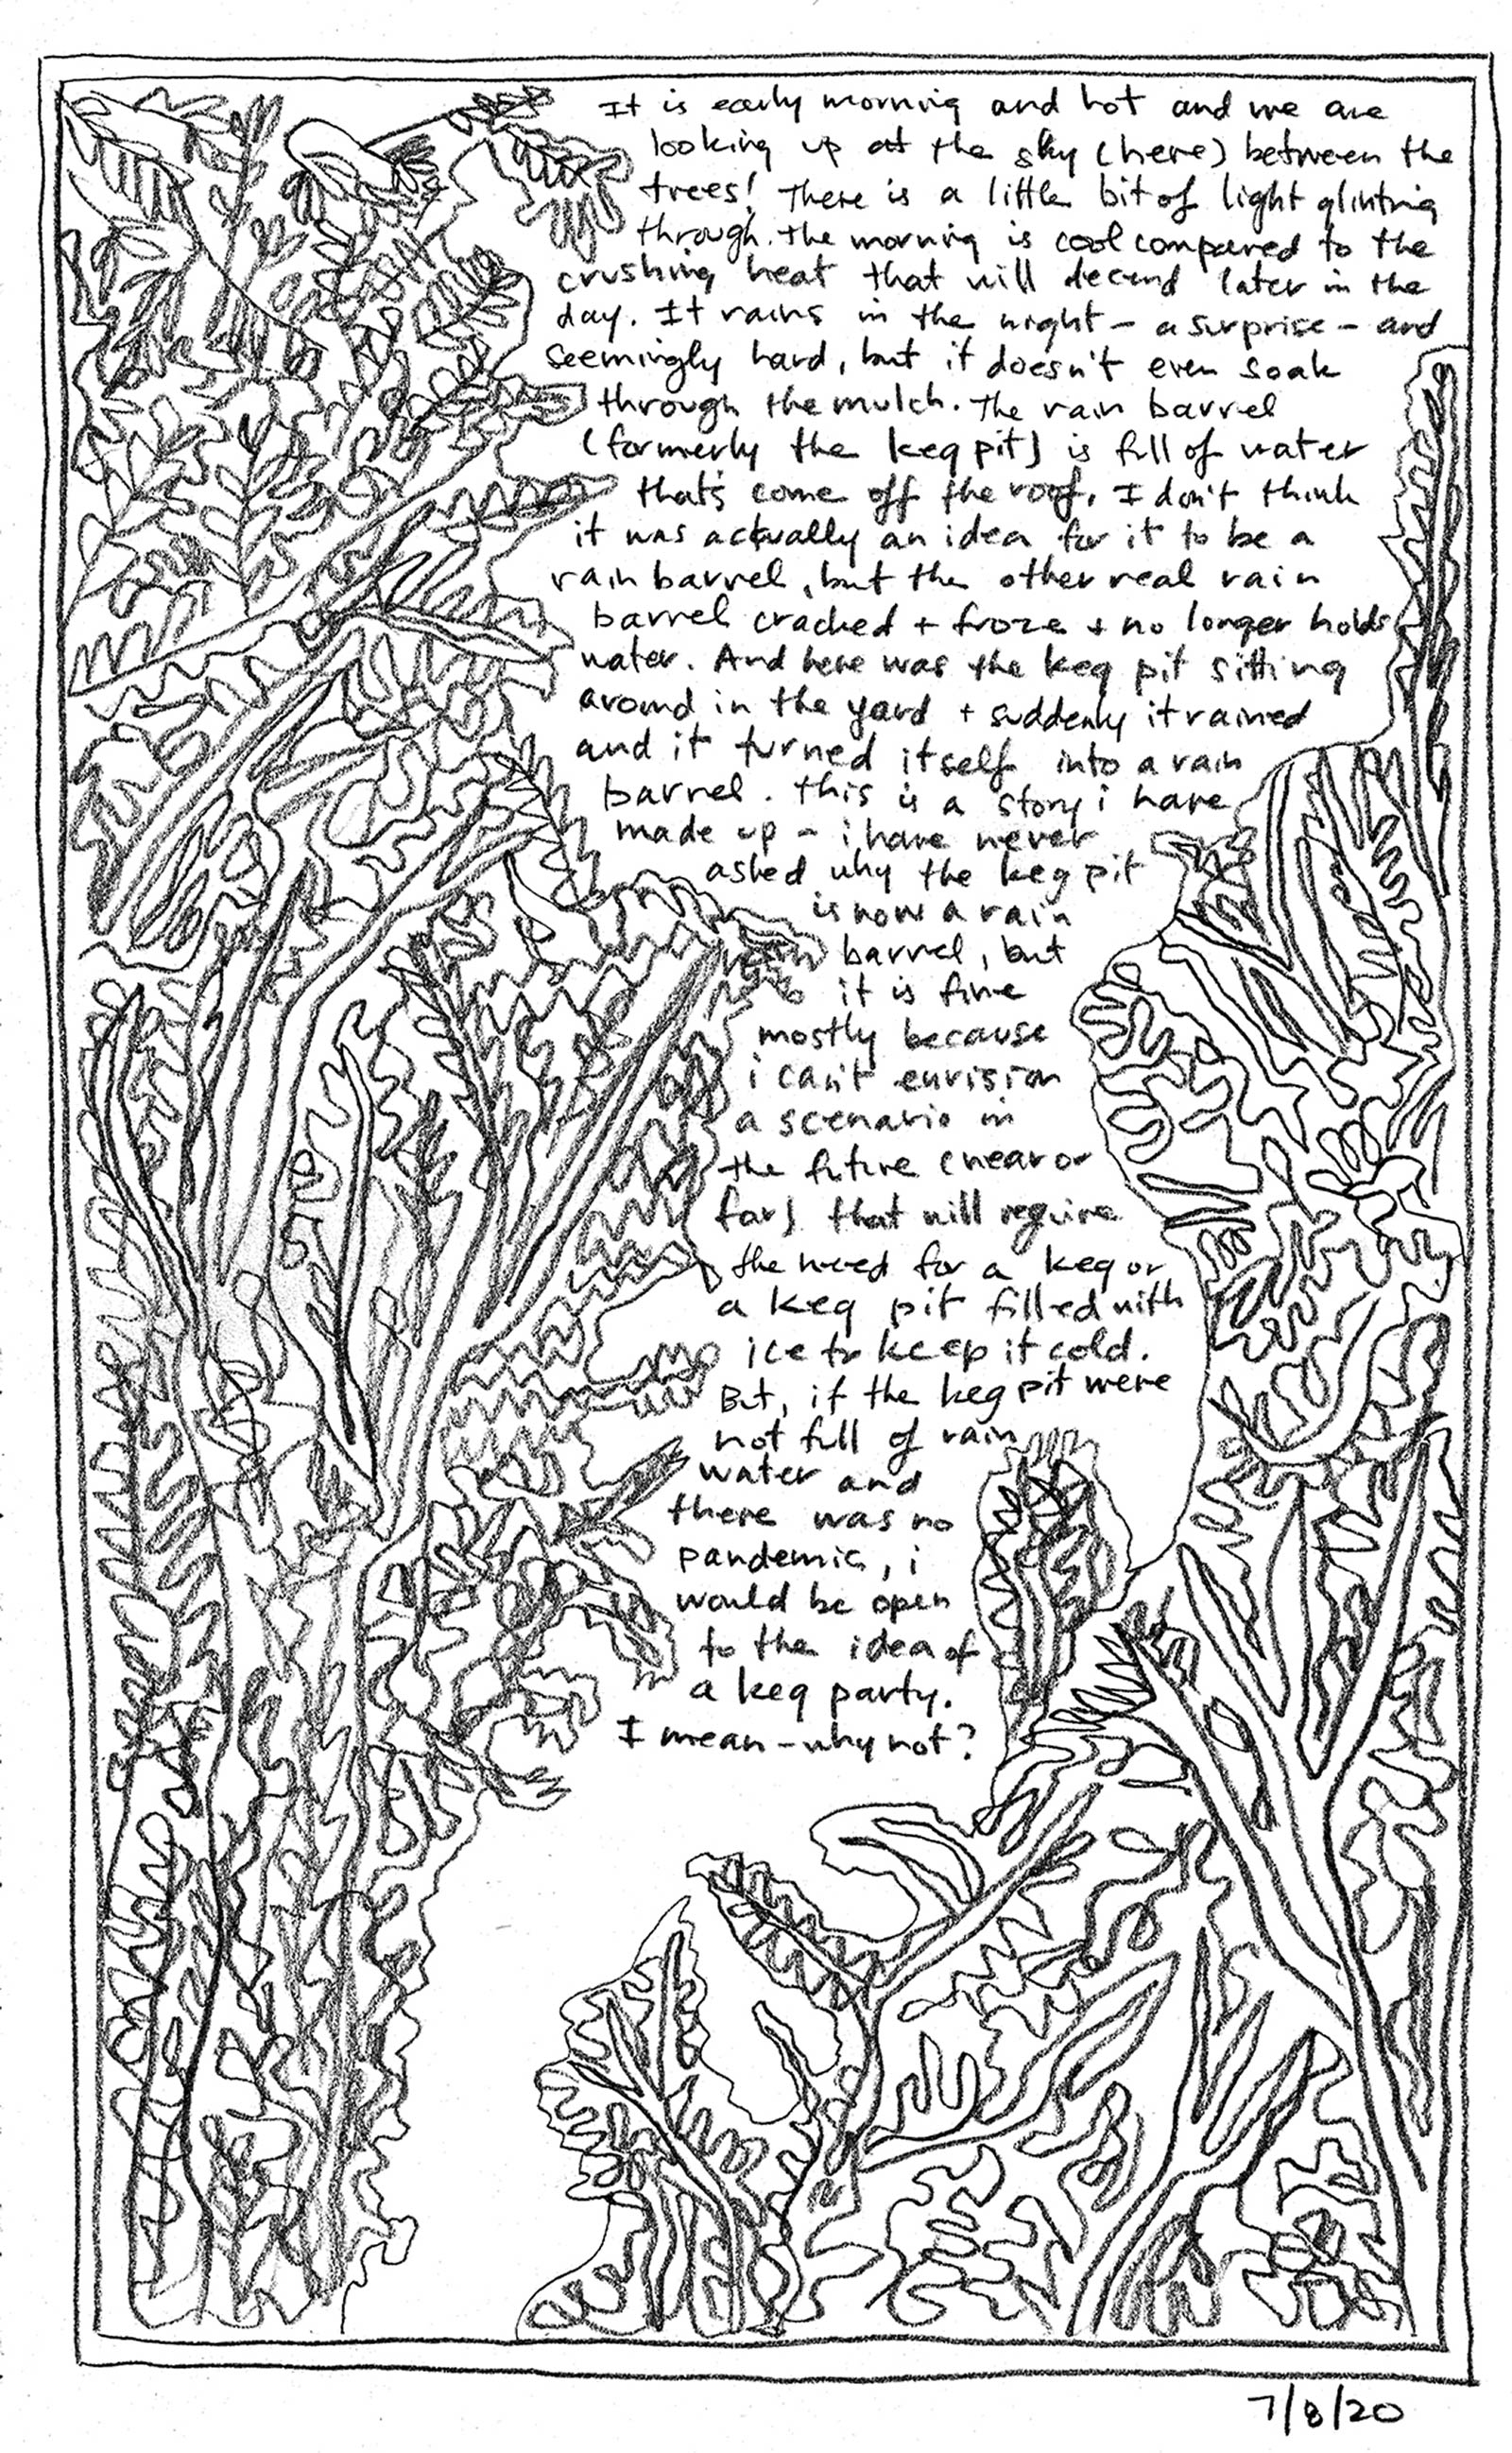 It is early morning and hot and we are
looking up at the sky (here) between the
trees! There is a little bit of light glinting
through. The morning is cool compared to the
crushing heat that will decend later in the
day. It rains in the night - a surprise - and
seemingly hard, but it doesn't even soak
through the mulch. The rain barrel
(formerly the keg pit) is full of water
that's come off the roof. I don't think
it was actually an idea for it to be a
rain barrel, but the other real rain
barrel cracked + froze + no longer holds
water. And here was the keg pit sitting
around in the yard + suddenly it rained
and it turned itself into a rain
barrel. This is a story i have
made up - i have never
asked why the keg pit
is now a rain
barrel, but
it is fine
mostly because
i can't envision
a scenario in
the future (near or
far) that will require
the need for a keg or
a keg pit filled with
ice to keep it cold.
But, if the keg pit were
not full of rain
water and
there was no
pandemic, i
would be open
to the idea of
a keg party.
I mean - why not?
7/8/20